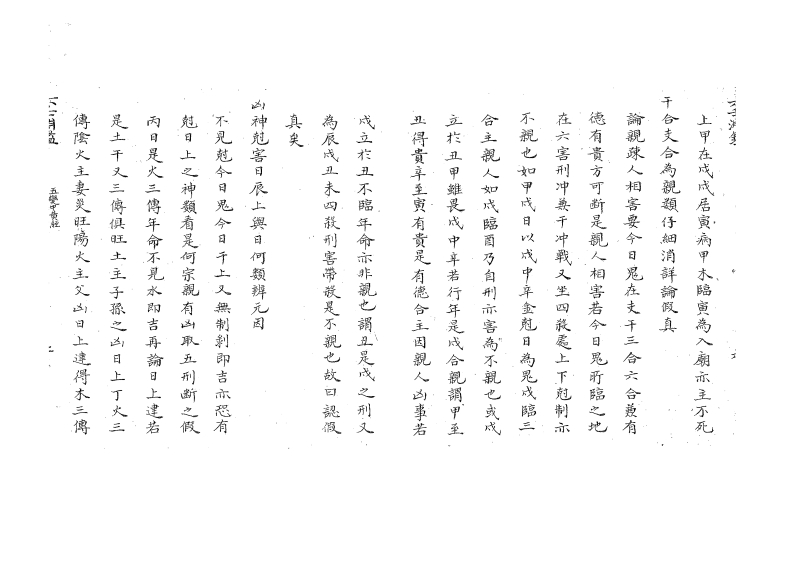 上甲在戌戌居寅病甲木臨寅為入廟亦主不死
干合支合為親類仔細消詳論假真
論親疎人相害要今日鬼在支干三合六合兼有
德有貴方可斷是親人相害若今日鬼所臨之地
在六害刑冲兼干冲戰又坐四殺處上下尅制亦
不親也如甲戌日以戌中辛金尅日為鬼戌臨三
合主親人如戌臨酉乃自刑亦害為不親也或戌
立於丑甲雖畏戌中辛若行年是戌合親謂甲至
丑得貴辛至寅有貴是有德合主因親人凶事若
戌立於丑不臨年命亦非親也謂丑是戌之刑又
為辰戌丑未四殺刑害帶殺是不親也故曰認假
真矣
凶神尅害日辰上與日何類辨元因
不見尅今日鬼今日干上又無制剋即吉亦恐有
尅日上之神類看是何宗親有凶取五刑斷之假
丙日是火三傳年命不見水即吉再論日上逢若
是土干又三傳俱旺土主子孫之凶日上丁火三
傳陰火主妻災旺陽火主父凶日上逢得木三傳
五變中黃經
九